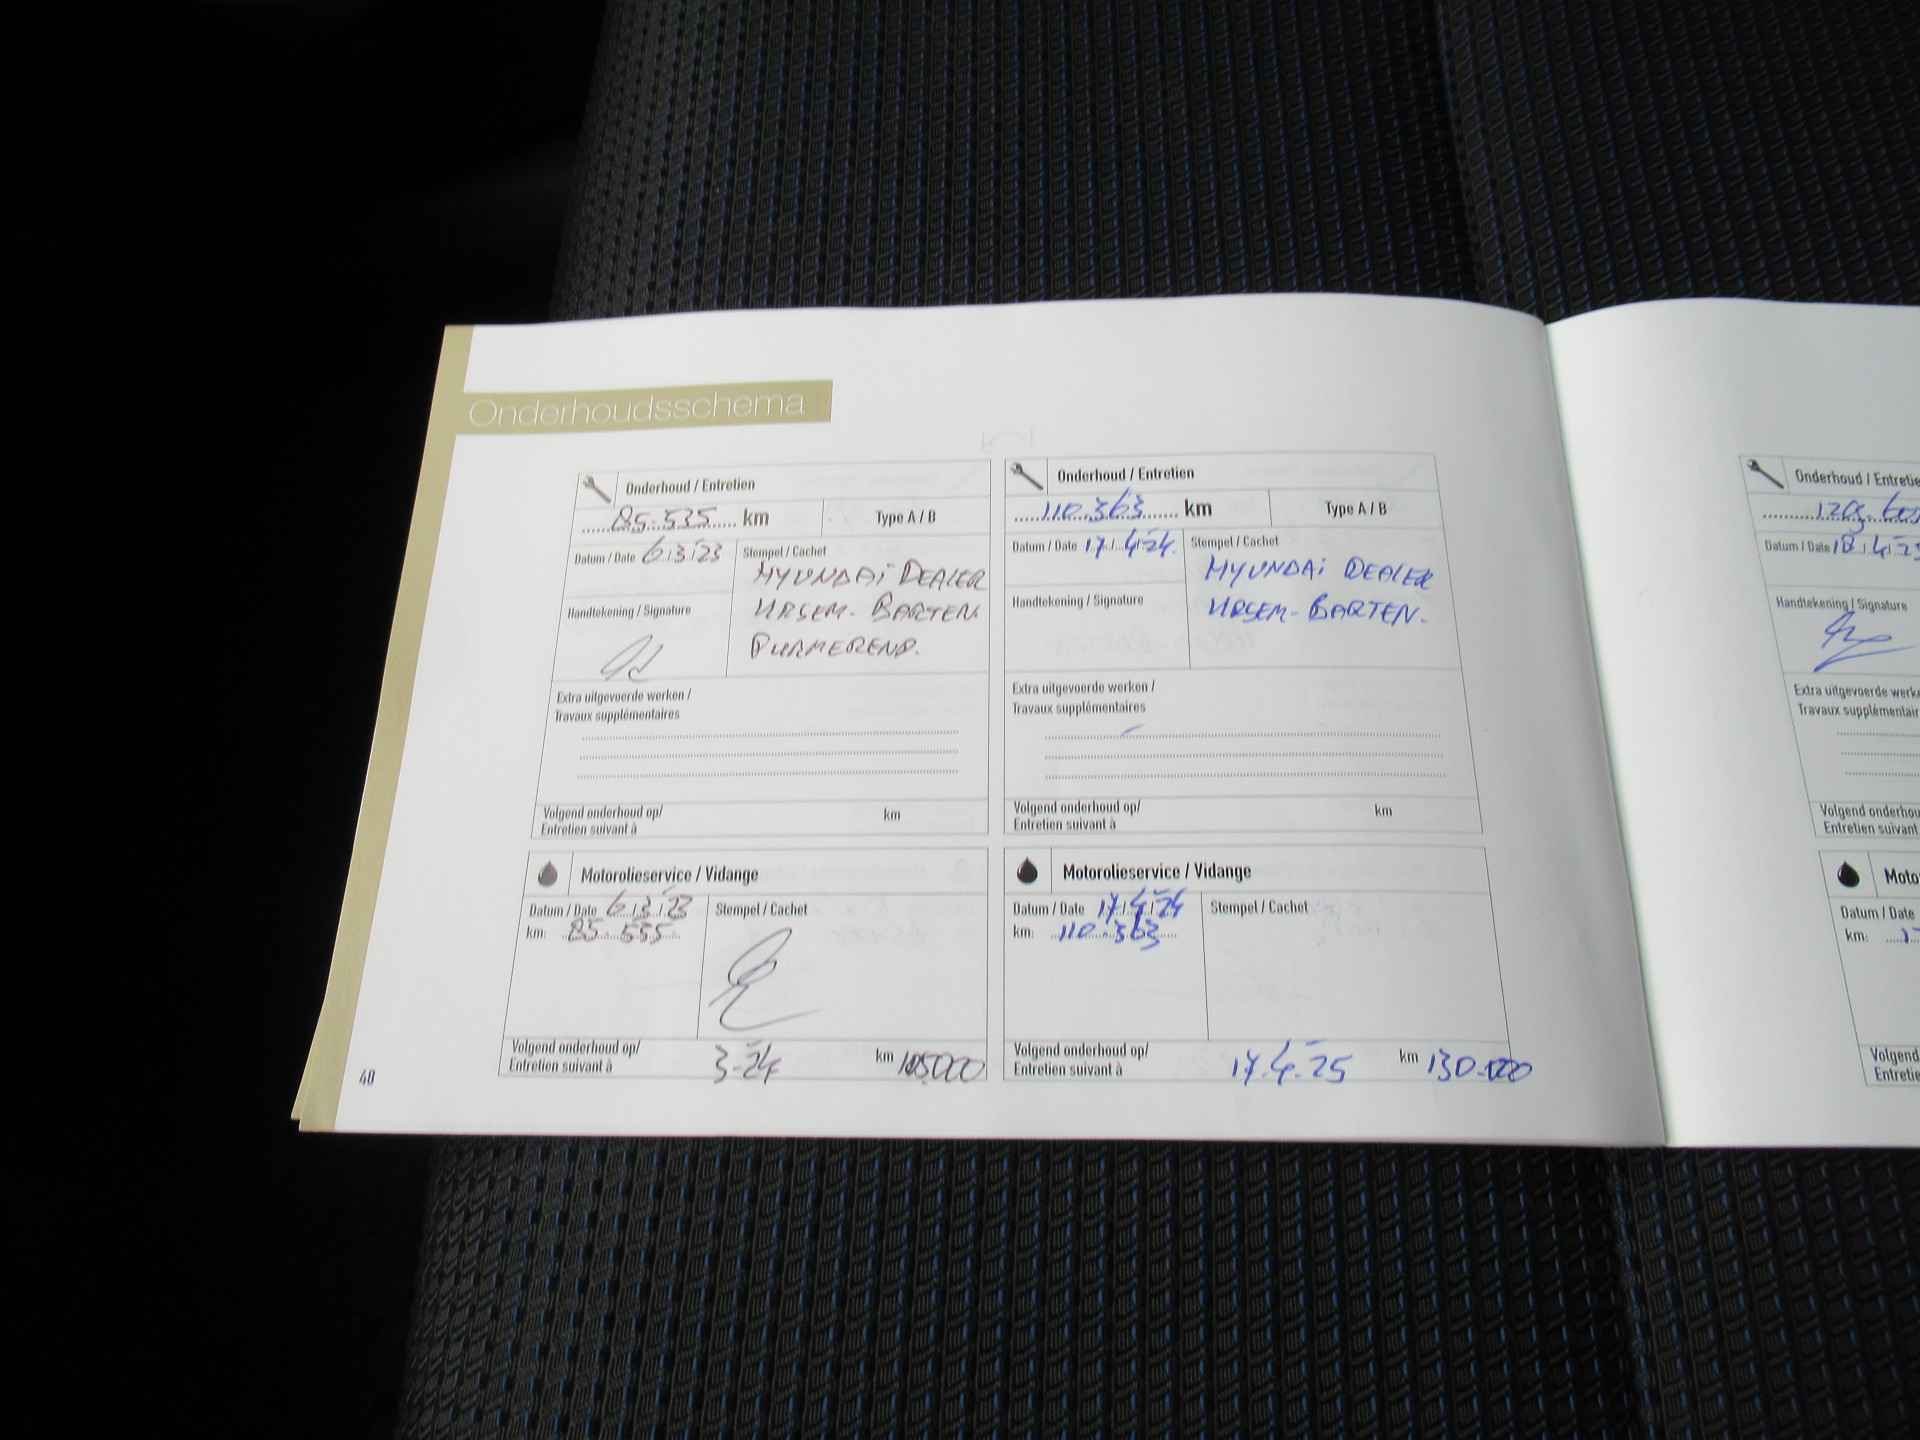 Onderhoudsschema
Onderhoud / Entretien
85.535 km Type A / B
Datum / Date 6.3.'23 Stempel / Cachet
HYUNDAi DEALER
URSEM-BARTEN.
PURMEREND.
Handtekening / Signature
Extra uitgevoerde werken /
Travaux supplémentaires
Volgend onderhoud op/ km
Entretien suivant à
Motorolieservice / Vidange
Datum / Date 6.3.'23 Stempel / Cachet
km: 85.535
Volgend onderhoud op/
Entretien suivant à 3-'24 km 105000
Onderhoud / Entretien
110.363 km Type A / B
Datum / Date 17.4.'24. Stempel / Cachet
HYUNDAi DEALER
URSEM-BARTEN.
Handtekening / Signature
Extra uitgevoerde werken /
Travaux supplémentaires
Volgend onderhoud op/ km
Entretien suivant à
Motorolieservice / Vidange
Datum / Date 17.4.'24 Stempel / Cachet
km: 110.363
Volgend onderhoud op/
Entretien suivant à 17.4.'25 km 130.000
40
Onderhoud /
Datum / Date 18.4.
Handtekening / Signature
Extra uitgevoerde
Travaux
Volgend
Entretien suivant
Datum / Date
km:
Volgend